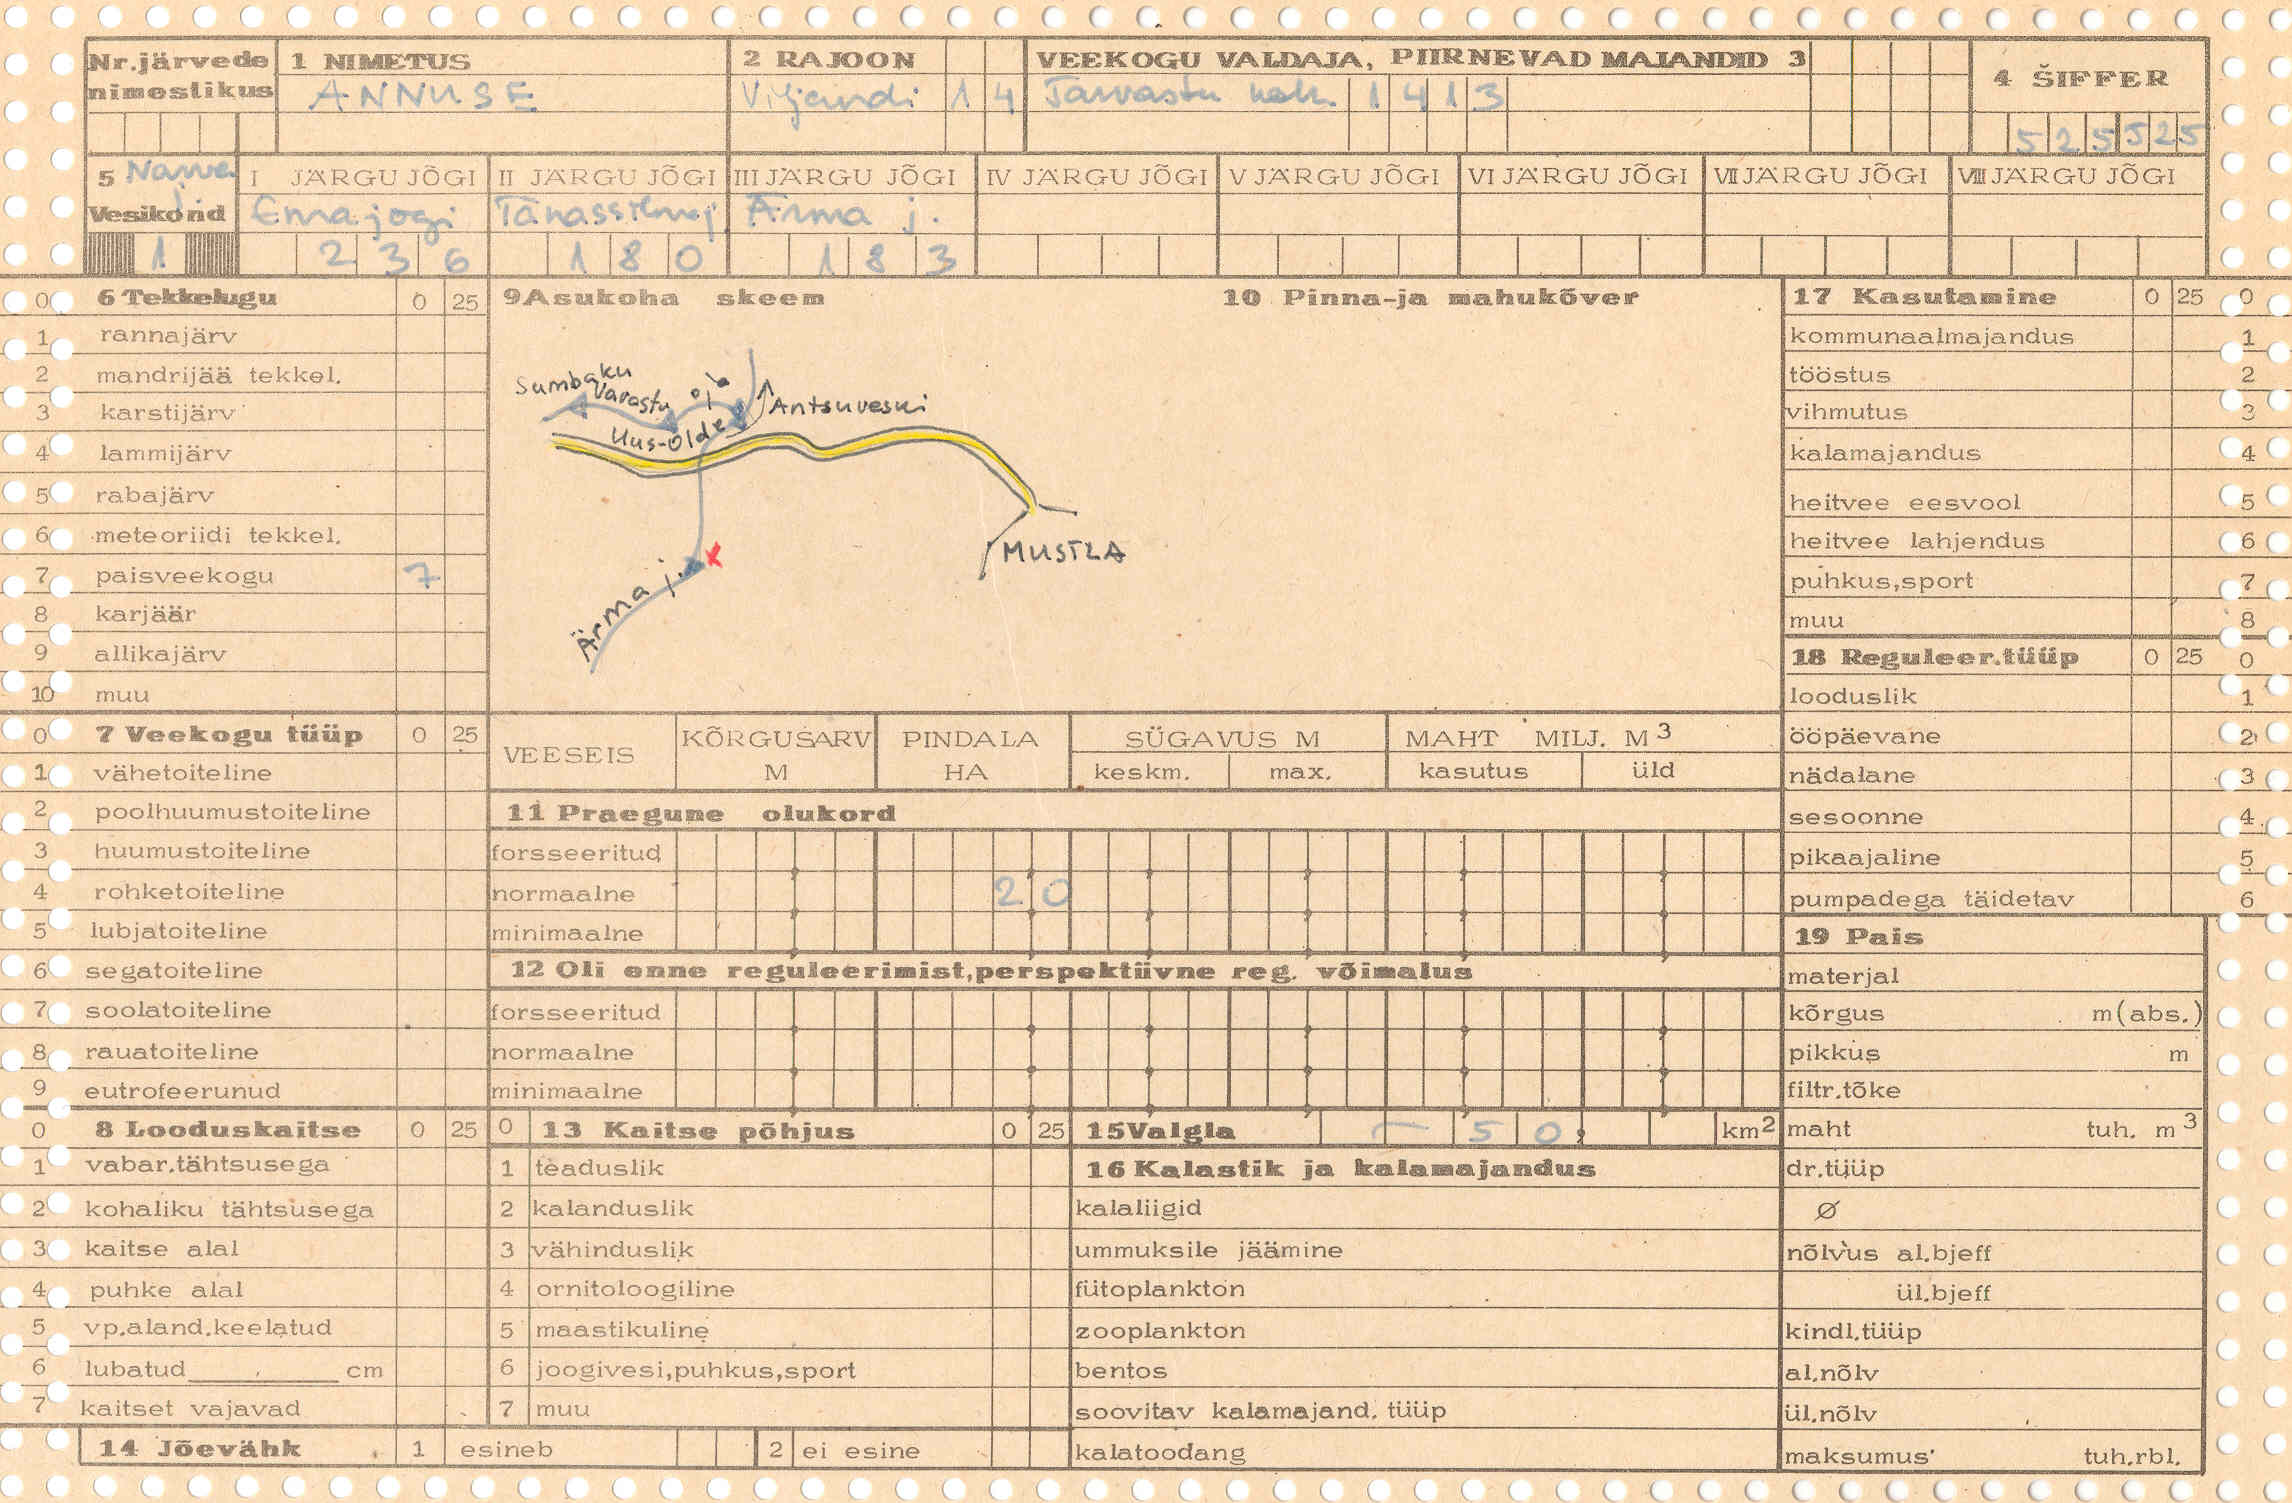 Nr.järvede nimestikus
1 NIMETUS
ANNUSE
2 RAJOON
Viljandi 14
VEEKOGU VALDAJA, PIIRNEVAD MAJANDID 3
Tarvastu kolh. 1413
4 ŠIFFER
525525
5 Narva j.
Vesikond
1
I JÄRGU JÕGI
Emajõgi
236
II JÄRGU JÕGI
Tänassilma j
180
III JÄRGU JÕGI
Ärma j.
183
IV JÄRGU JÕGI
V JÄRGU JÕGI
VI JÄRGU JÕGI
VII JÄRGU JÕGI
VIII JÄRGU JÕGI
0 6 Tekkelugu 0 25
1 rannajärv
2 mandrijää tekkel.
3 karstijärv
4 lammijärv
5 rabajärv
6 meteoriidi tekkel.
7 paisveekogu 7
8 karjäär
9 allikajärv
10 muu
0 7 Veekogu tüüp 0 25
1 vähetoiteline
2 poolhuumustoiteline
3 huumustoiteline
4 rohketoiteline
5 lubjatoiteline
6 segatoiteline
7 soolatoiteline
8 rauatoiteline
9 eutrofeerunud
0 8 Looduskaitse 0 25
1 vabar.tähtsusega
2 kohaliku tähtsusega
3 kaitse alal
4 puhke alal
5 vp.aland.keelatud
6 lubatud cm
7 kaitset vajavad
9 Asukoha skeem
10 Pinna-ja mahukõver
Sumbaku
Varastu oja
Antsuveski
Uus-Olde
MUSTLA
Ärma j.
x
VEESEIS
KÕRGUSARV M
PINDALA HA
SÜGAVUS M
keskm. max.
MAHT MILJ. M3
kasutus üld
11 Praegune olukord
forsseeritud
normaalne 2 0
minimaalne
12 Oli enne reguleerimist,perspektiivne reg. võimalus
forsseeritud
normaalne
minimaalne
0 13 Kaitse põhjus 0 25
1 teaduslik
2 kalanduslik
3 vähinduslik
4 ornitoloogiline
5 maastikuline
6 joogivesi,puhkus,sport
7 muu
14 Jõevähk 1 esineb 2 ei esine
15 Valgla 50, km2
16 Kalastik ja kalamajandus
kalaliigid
ummuksile jäämine
fütoplankton
zooplankton
bentos
soovitav kalamajand. tüüp
kalatoodang
17 Kasutamine 0 25 0
kommunaalmajandus 1
tööstus 2
vihmutus 3
kalamajandus 4
heitvee eesvool 5
heitvee lahjendus 6
puhkus,sport 7
muu 8
18 Reguleer.tüüp 0 25 0
looduslik 1
ööpäevane 2
nädalane 3
sesoonne 4
pikaajaline 5
pumpadega täidetav 6
19 Pais
materjal
kõrgus m(abs.)
pikkus m
filtr.tõke
maht tuh. m3
dr.tüüp
Ø
nõlvus al.bjeff
ül.bjeff
kindl.tüüp
al.nõlv
ül.nõlv
maksumus tuh.rbl.